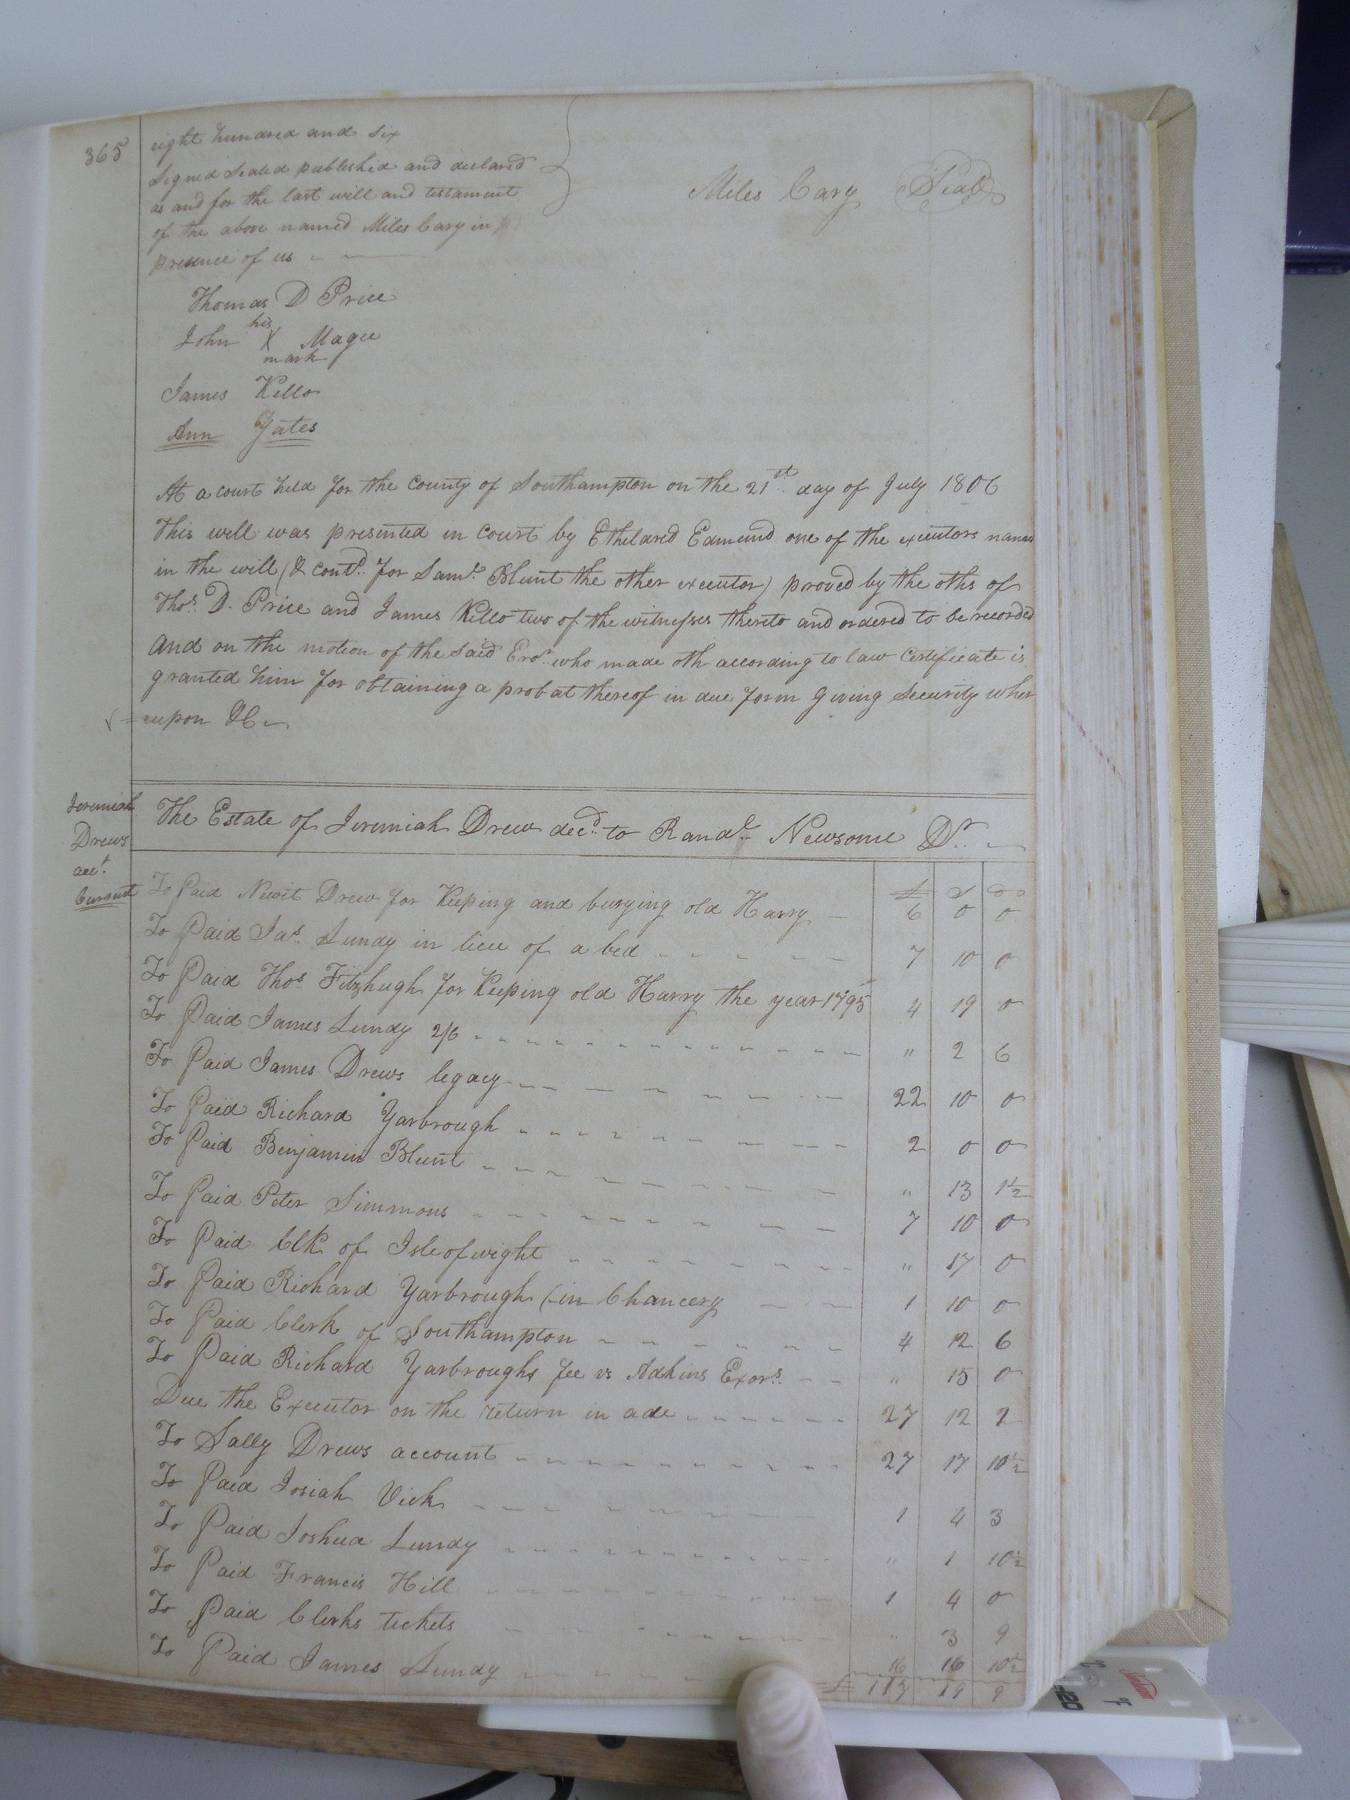 365
eight hundred and six
Signed Sealed published and declared
as and for the last will and testament
of the above named Miles Cary in
presence of us
Miles Cary Seal
Thomas D Price
his
John X Magee
mark
James Kello
Ann Gates
At a court held for the County of Southampton on the 21st day of July 1806
This will was presented in court by Etheldred Edmund one of the executors named
in the will (& contd. for Saml. Blunt the other executor) proved by the oths of
Thos. D. Price and James Kello two of the witnesses thereto and ordered to be recorded
And on the motion of the said Exor. who made oth according to law Certificate is
granted him for obtaining a probat thereof in due form giving Security wher
eupon &C
Jeremiah
Drews
acct.
Current
The Estate of Jeremiah Drew decd. to Randl. Newsome Dr.
£ S D
To Paid Newit Drew for Keeping and burying old Harry 6 0 0
To Paid Jas. Lundy in lieu of a bed 7 10 0
To Paid Thos Fitzhugh for Keeping old Harry the year 1795 4 19 0
To Paid James Lundy 2/6 " 2 6
To Paid James Drews legacy 22 10 0
To Paid Richard Yarbrough 2 0 0
To Paid Benjamin Blunt " 13 1½
To Paid Peter Simmons 7 10 0
To Paid Clk of Isle of wight " 17 0
To Paid Richard Yarbrough (in Chancery 1 10 0
To Paid Clerk of Southampton 4 12 6
To Paid Richard Yarbroughs fee vs Adkins Exors. " 15 0
Due the Executor on the return in ade 27 12 2
To Sally Drews account 27 17 10½
To Paid Josiah Vick 1 4 3
To Paid Joshua Lundy " 1 10½
To Paid Francis Hill 1 4 0
To Paid Clerks tickets " 3 9
To Paid James Lundy 16 16 10½
£ 19 9